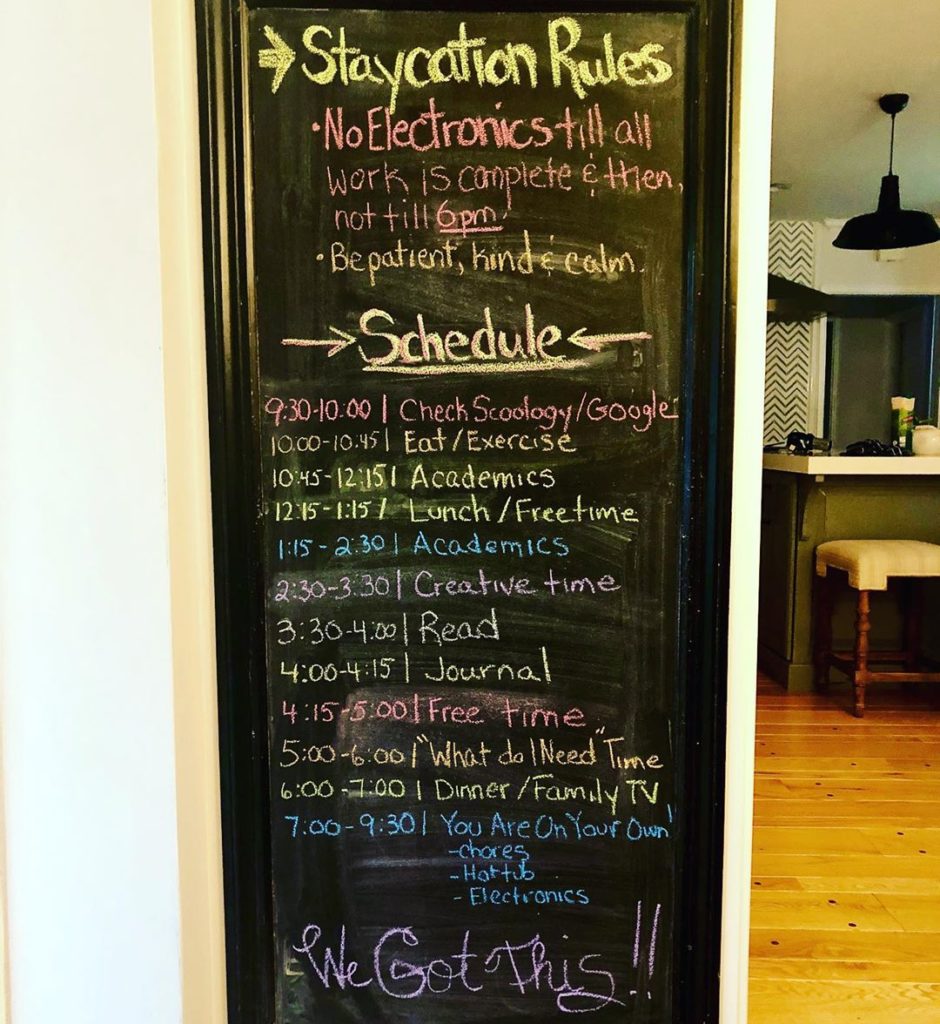 Staycation Rules
• No Electronics till all
work is complete & then,
not till 6pm!
• Be patient, kind & calm.
Schedule
9:30-10:00 | Check Scoology/Google
10:00-10:45 | Eat/Exercise
10:45-12:15 | Academics
12:15-1:15 / Lunch/Freetime
1:15-2:30 | Academics
2:30-3:30 | Creative time
3:30-4:00 | Read
4:00-4:15 | Journal
4:15-5:00 | Free time
5:00-6:00 | "What do I Need" Time
6:00-7:00 | Dinner/Family TV
7:00-9:30 | You Are On Your Own!
-chores
- Hot tub
- Electronics
We Got This!!